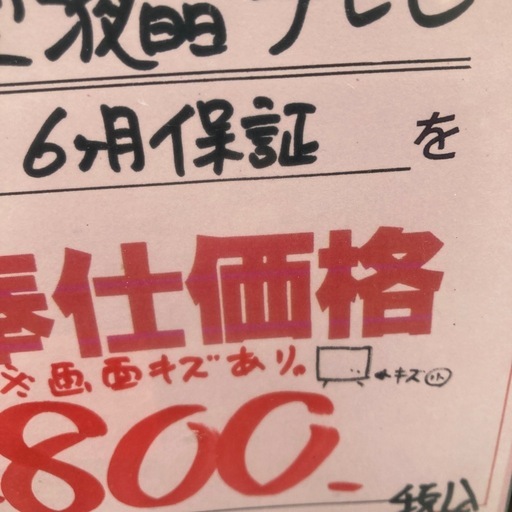 型液晶テレビ
6ヶ月保証 を
奉仕価格
※画面キズあり。 ←キズ小
800-
税込